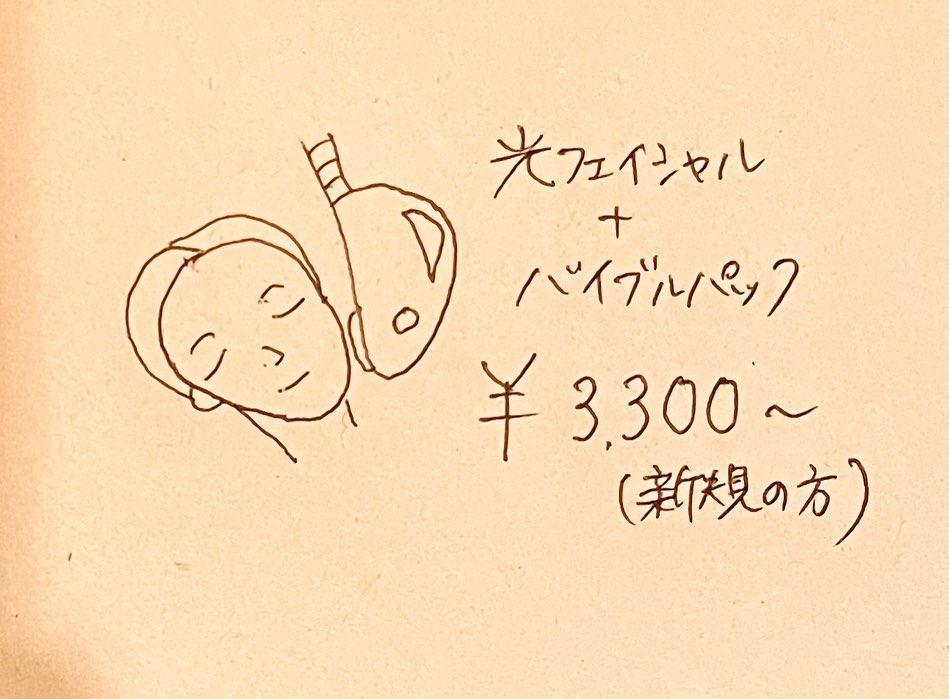 光フェイシャル
+
バイブルパック
¥3,300~
(新規の方)